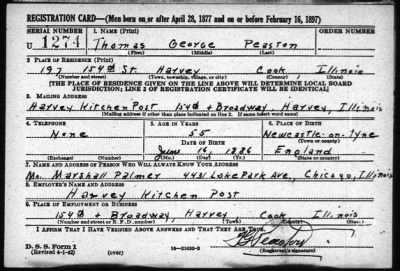 REGISTRATION CARD—(Men born on or after April 28, 1877 and on or before February 16, 1897)
SERIAL NUMBER 1. NAME (Print) ORDER NUMBER
U 1274 Thomas George Peaston
(First) (Middle) (Last)
2. PLACE OF RESIDENCE (Print)
197 154th St. Harvey Cook Illinois
(Number and street) (Town, township, village, or city) (County) (State)
[THE PLACE OF RESIDENCE GIVEN ON THE LINE ABOVE WILL DETERMINE LOCAL BOARD
JURISDICTION; LINE 2 OF REGISTRATION CERTIFICATE WILL BE IDENTICAL]
3. MAILING ADDRESS
Harvey Kitchen Post 154th + Broadway, Harvey, Illinois
[Mailing address if other than place indicated on line 2. If same insert word same]
4. TELEPHONE 5. AGE IN YEARS 6. PLACE OF BIRTH
None 55 Newcastle-on-Tyne
DATE OF BIRTH (Town or county)
June 16, 1886 England
(Exchange) (Number) (Mo.) (Day) (Yr.) (State or country)
7. NAME AND ADDRESS OF PERSON WHO WILL ALWAYS KNOW YOUR ADDRESS
Mr. Marshall Palmer 4431 Lake Park Ave., Chicago, Illinois
8. EMPLOYER'S NAME AND ADDRESS
Harvey Kitchen Post
9. PLACE OF EMPLOYMENT OR BUSINESS
154th + Broadway, Harvey Cook Illinois
(Number and street or R. F. D. number) (Town) (County) (State)
I AFFIRM THAT I HAVE VERIFIED ABOVE ANSWERS AND THAT THEY ARE TRUE.
D. S. S. Form 1
(Revised 4-1-42) (over) (Registrant's signature)